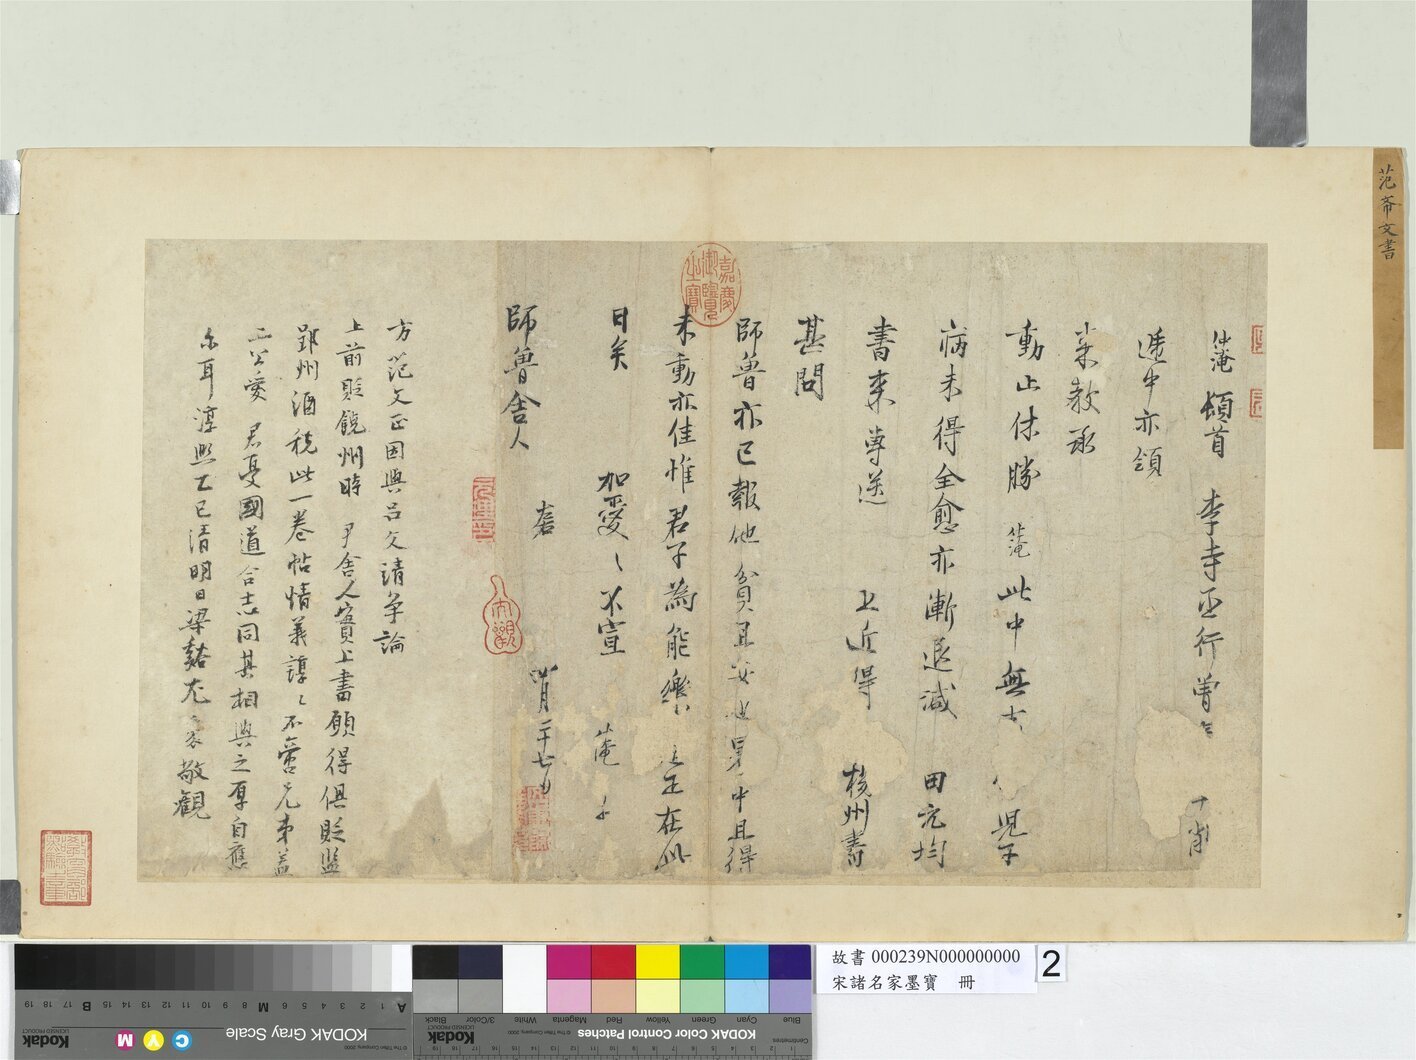 范文書
仲淹頓首 李寺丞行曾
遞中亦領
來教承
動止休勝 仲淹此中無 兒子
病未得全愈亦漸退減 田元均
書來專送 上近得 揚州書
甚問
師魯亦已報他貧且安也 中且得
未動亦佳惟君子為能樂 正在此
日矣 加愛〻不宣 仲淹
師魯舍人 四月二十七日
方范文正因與呂文靖爭論
上前貶饒州時 尹舍人實上書願得俱貶監
郢州酒稅此一卷帖情義諄〻不啻兄弟蓋
二公愛 君憂國道合志同其相與之厚自應
尒耳淳熙乙巳清明日梁谿尤袤敬觀
嘉慶御覽之寶
故書 000239N000000000
宋諸名家墨寶 冊
2
KODAK Gray Scale
Kodak
LICENSED PRODUCT
© The Tiffen Company, 2000
A 1 2 3 4 5 6 M 8 9 10 11 12 13 14 15 B 17 18 19
C Y M
KODAK Color Control Patches
Kodak
LICENSED PRODUCT
© The Tiffen Company, 2000
Blue Cyan Green Yellow Red Magenta White 3/Color Black
Centimetres